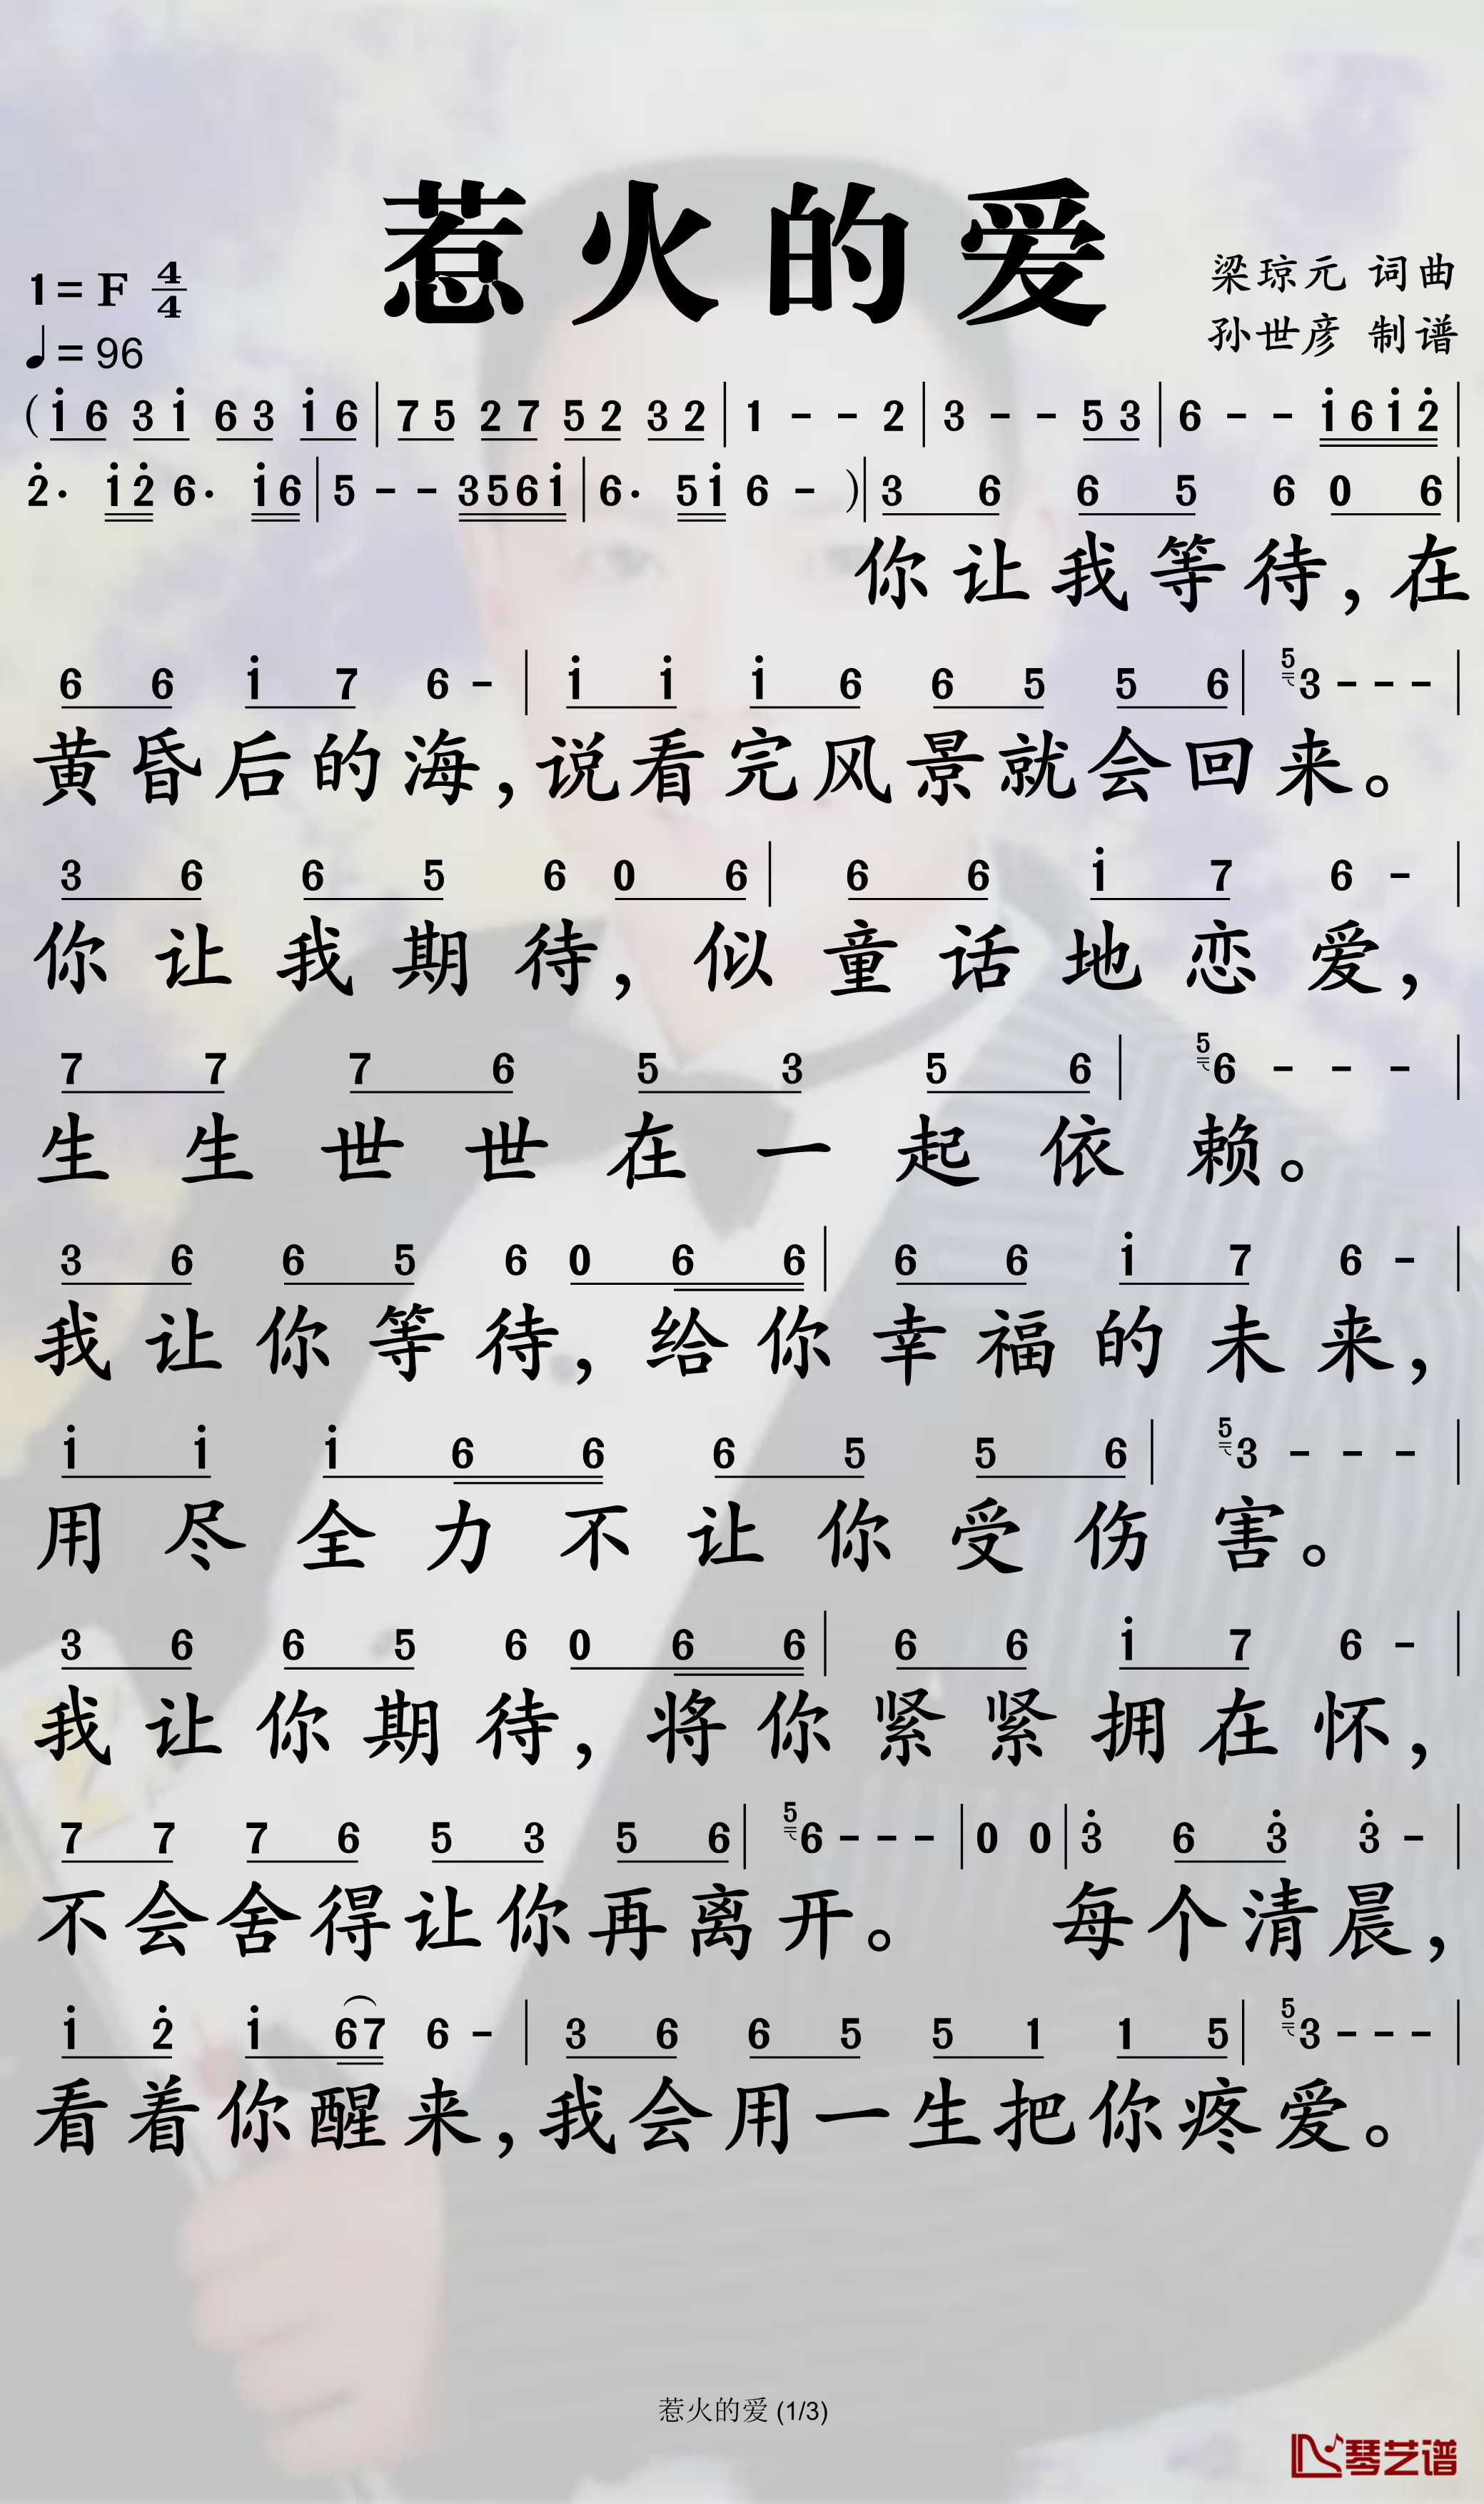 惹火的爱
1=F 4/4
♩=96
梁琼元 词曲
孙世彦 制谱
( i̇ 6 3 i̇ 6 3 i̇ 6 | 7 5 2 7 5 2 3 2 | 1 - - 2 | 3 - - 5 3 | 6 - - i̇ 6 i̇ 2̇ |
2̇· i̇ 2̇ 6· i̇ 6 | 5 - - 3 5 6 i̇ | 6· 5 i̇ 6 - ) | 3 6 6 5 6 0 6 |
你让我等待,在
6 6 i̇ 7 6 - | i̇ i̇ i̇ 6 6 5 5 6 | 5 3 - - - |
黄昏后的海,说看完风景就会回来。
3 6 6 5 6 0 6 | 6 6 i̇ 7 6 - |
你让我期待,似童话地恋爱,
7 7 7 6 5 3 5 6 | 5 6 - - - |
生生世世在一起依赖。
3 6 6 5 6 0 6 6 | 6 6 i̇ 7 6 - |
我让你等待,给你幸福的未来,
i̇ i̇ i̇ 6 6 6 5 5 6 | 5 3 - - - |
用尽全力不让你受伤害。
3 6 6 5 6 0 6 6 | 6 6 i̇ 7 6 - |
我让你期待,将你紧紧拥在怀,
7 7 7 6 5 3 5 6 | 5 6 - - - | 0 0 | 3̇ 6 3̇ 3̇ - |
不会舍得让你再离开。 每个清晨,
i̇ 2̇ i̇ 6 7 6 - | 3 6 6 5 5 1 1 5 | 5 3 - - - |
看着你醒来,我会用一生把你疼爱。
惹火的爱 (1/3)
琴艺谱